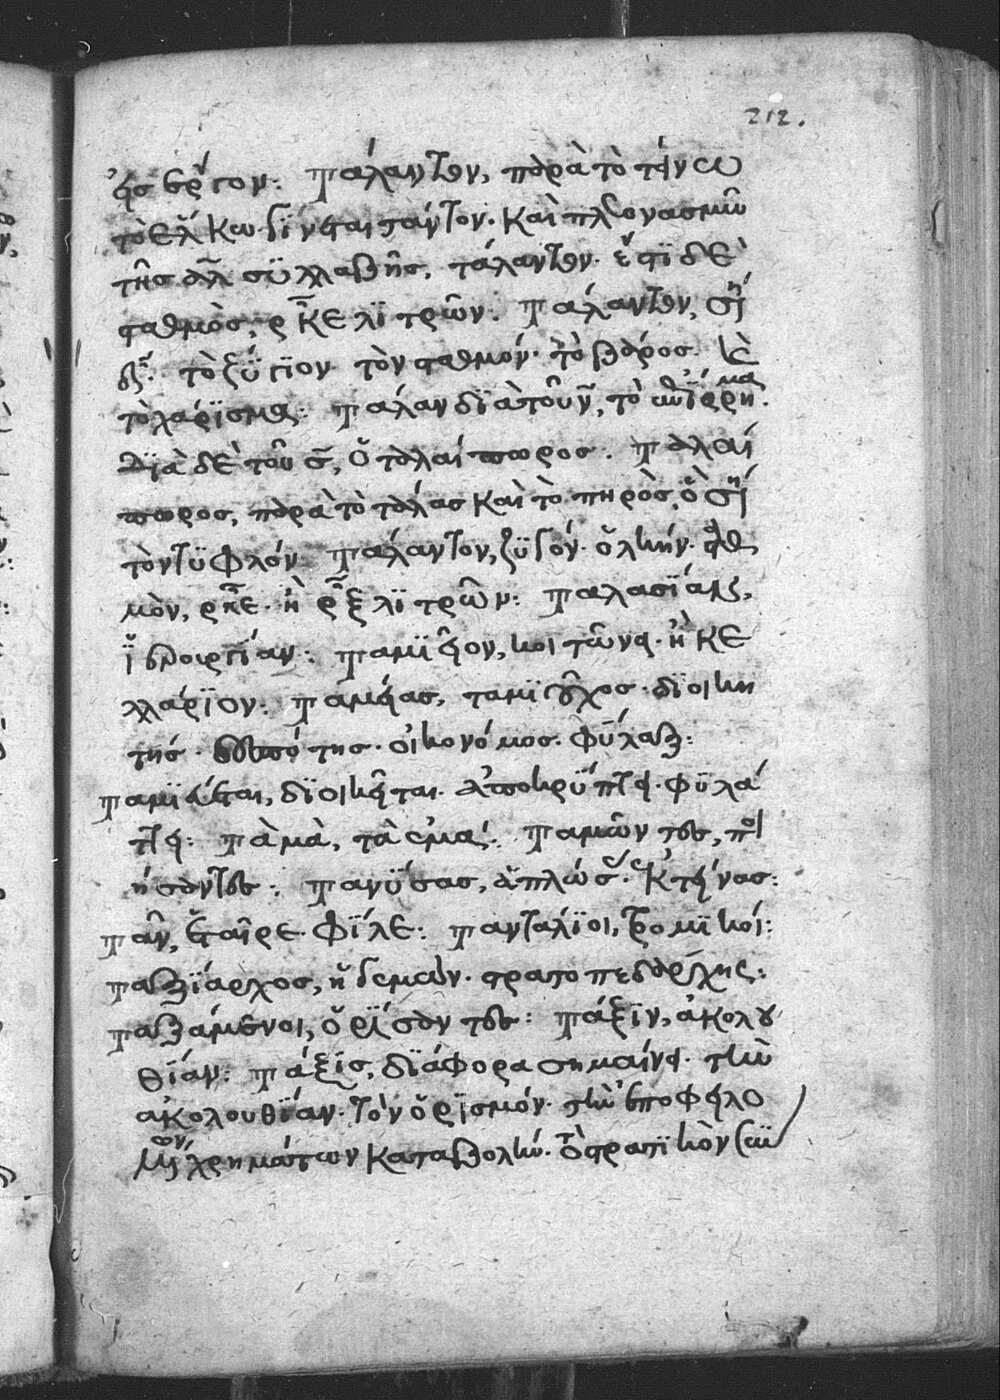 212.
εἰς ἔργον: Τάλαντον, παρὰ τὸ τείνω
τὸ ἕλκω· γίνεται τάντον· καὶ πλεονασμῶ
τῆς αλ συλλαβῆς, τάλαντον· ἔστι δὲ
σταθμὸς, ρκε λιτρῶν: Τάλαντον, ση
δ. τὸ ζύγιον· τὸν σταθμόν· τὸ βάρος. καὶ
τὸ λάρισμα: Τάλαν διὰ τοῦ ν, τὸ
διὰ δὲ τοῦ σ, ὁ ταλαίπωρος. Ταλαί
πωρος, παρὰ τὸ τάλας καὶ τὸ πηρὸς, ὃ ση
τὸν τυφλόν Τάλαντον, ζυγόν· ὁλκήν· σταθ
μὸν, ρκε· ἢ ρξ λιτρῶν: Ταλασίαν,
ἱστουργίαν: Ταμιεῖον, κοιτῶνα· ἢ κε
λλάριον: Ταμίας, ταμιοῦχος· διοικη
τής· δεσπότης· οἰκονόμος· φύλαξ:
Ταμιεύεται, διοικεῖται· ἀποκρύπτει· φυλά
ττει: Τἀμὰ, τὰ ἐμά: Ταμὼν τες,
ήσαντες: Τανύσας, ἁπλώσας· ἐκτείνας:
Τᾶν, ἑταῖρε· φίλε: Τανταλίοι, τρομικοί:
Ταξίαρχος, ἡγεμών· στρατοπεδάρχης:
Ταξάμενοι, ὁρίσαντες: Τάξιν, ἀκολου
θίαν: Τάξις, διάφορα σημαίνει· τὴν
ἀκολουθίαν· τὸν ὁρισμόν· τὴν ὑποφειλο
μένων χρημάτων καταβολήν· τὸ στρατικὸν σύ